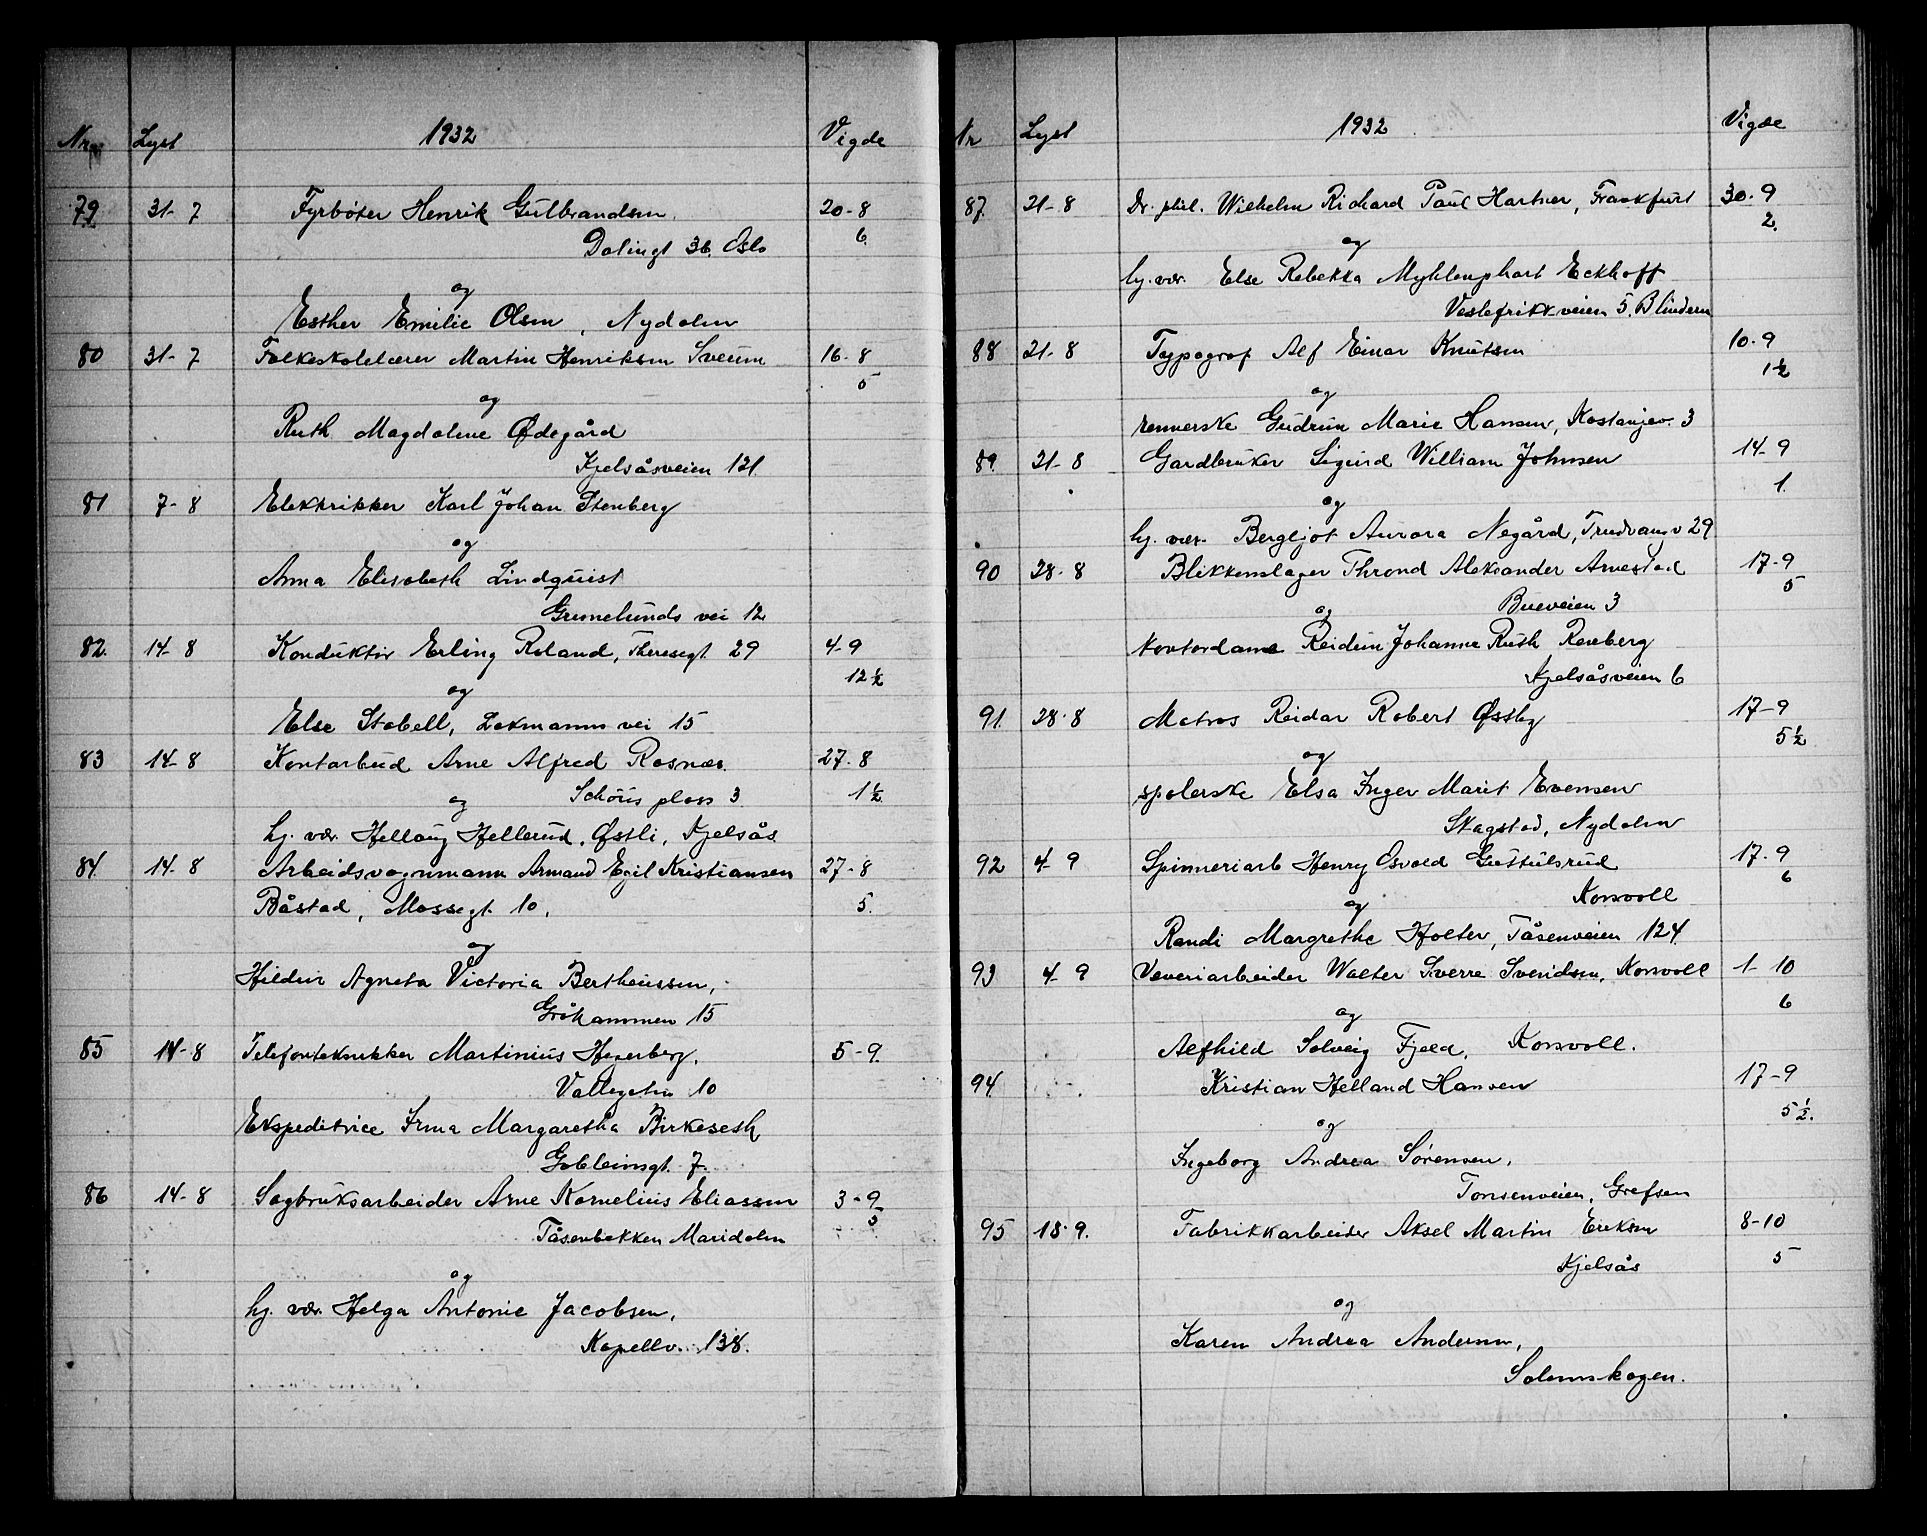 Nr. Lyst 1932 Vigde
79 31-7 Fyrbøter Henrik Gulbrandsen. 20-8
Dalingt 36. Oslo 6.
og
Esther Emilie Olsen, Nydalen
80 31-7 Folkeskolelærer Martin Henriksen Sveum 16-8
5
og
Ruth Magdalene Ødegård
Kjelsåsveien 121.
81 7-8 Elektrikker Karl Johan Stenberg
og
Anna Elisabeth Lindquist
Grimelunds vei 12
82. 14-8 Konduktør Erling Roland, Theresegt. 29 4-9
12½
og
Else Stabell, Lakmanns vei 15
83 14-8 Kontorbud Arne Alfred Rosnæs. 27-8
og Schous plass 3. 1½
hj. vær. Hellaug Hellerud, Østli, Kjelsås
84. 14-8 Arbeidsvognmann Armand Egil Kristiansen 27-8
Båstad, Mossegt. 10. 5.
og
Hildur Agneta Victoria Bertheussen,
Gråkammen 15
85 14-8 Telefontekniker Martinius Hegerberg, 5-9.
Vallegatn 10
Ekspeditrice Irma Margaretha Birkeseth
Gobleinsgt. 7.
86 14-8 Sagbruksarbeider Arne Kornelius Eliassen 3-9
Tåsenbakken Maridalen 5
og
hj. vær. Helga Antonie Jacobsen,
Kapellv. 138.
Nr Lyst 1932 Vigde
87. 21-8 Dr. phil. Wilhelm Richard Paul Hartner, Frankfurt 30-9
2.
og
hj. vær. Else Rebekka Myhlenphort Eckhoff
Veslefrikkveien 5. Blindern
88 21-8 Typograf Alf Einar Knutsen 10-9
1½
og
rennerske Gudrun Marie Hansen, Kastanjev. 3
89. 21-8 Gardbruker Sigurd William Johnsen 14-9
1.
og
hj. vær. Bergljot Aurora Negård, Trudvangv 29
90 28-8 Blikkenslager Thrond Aleksander Arnestad 17-9
og Bueveien 3 5
Kontordame Reidun Johanne Ruth Renberg
Kjelsåsveien 6
91. 28-8 Matros Reidar Robert Østby 17-9
5½
og
spolerske Elsa Inger Marit Evensen
Skagstad, Nydalen
92 4-9 Spinneriarb Henry Osvald Guttulsrud 17-9
og Korsvoll 6
Randi Margrethe Holter, Tåsenveien 124.
93 4-9 Veveriarbeider Walter Sverre Svendsen, Korsvoll 1-10
6
og
Alfhild Solveig Fjeld, Korsvoll.
94. Kristian Helland Hansen 17-9
5½.
og
Ingeborg Andrea Sørensen,
Tonsenveien, Grefsen
95 18-9. Fabrikkarbeider Aksel Martin Eriksen 8-10
Kjelsås 5
og
Karen Andrea Andersen,
Solemskogen.